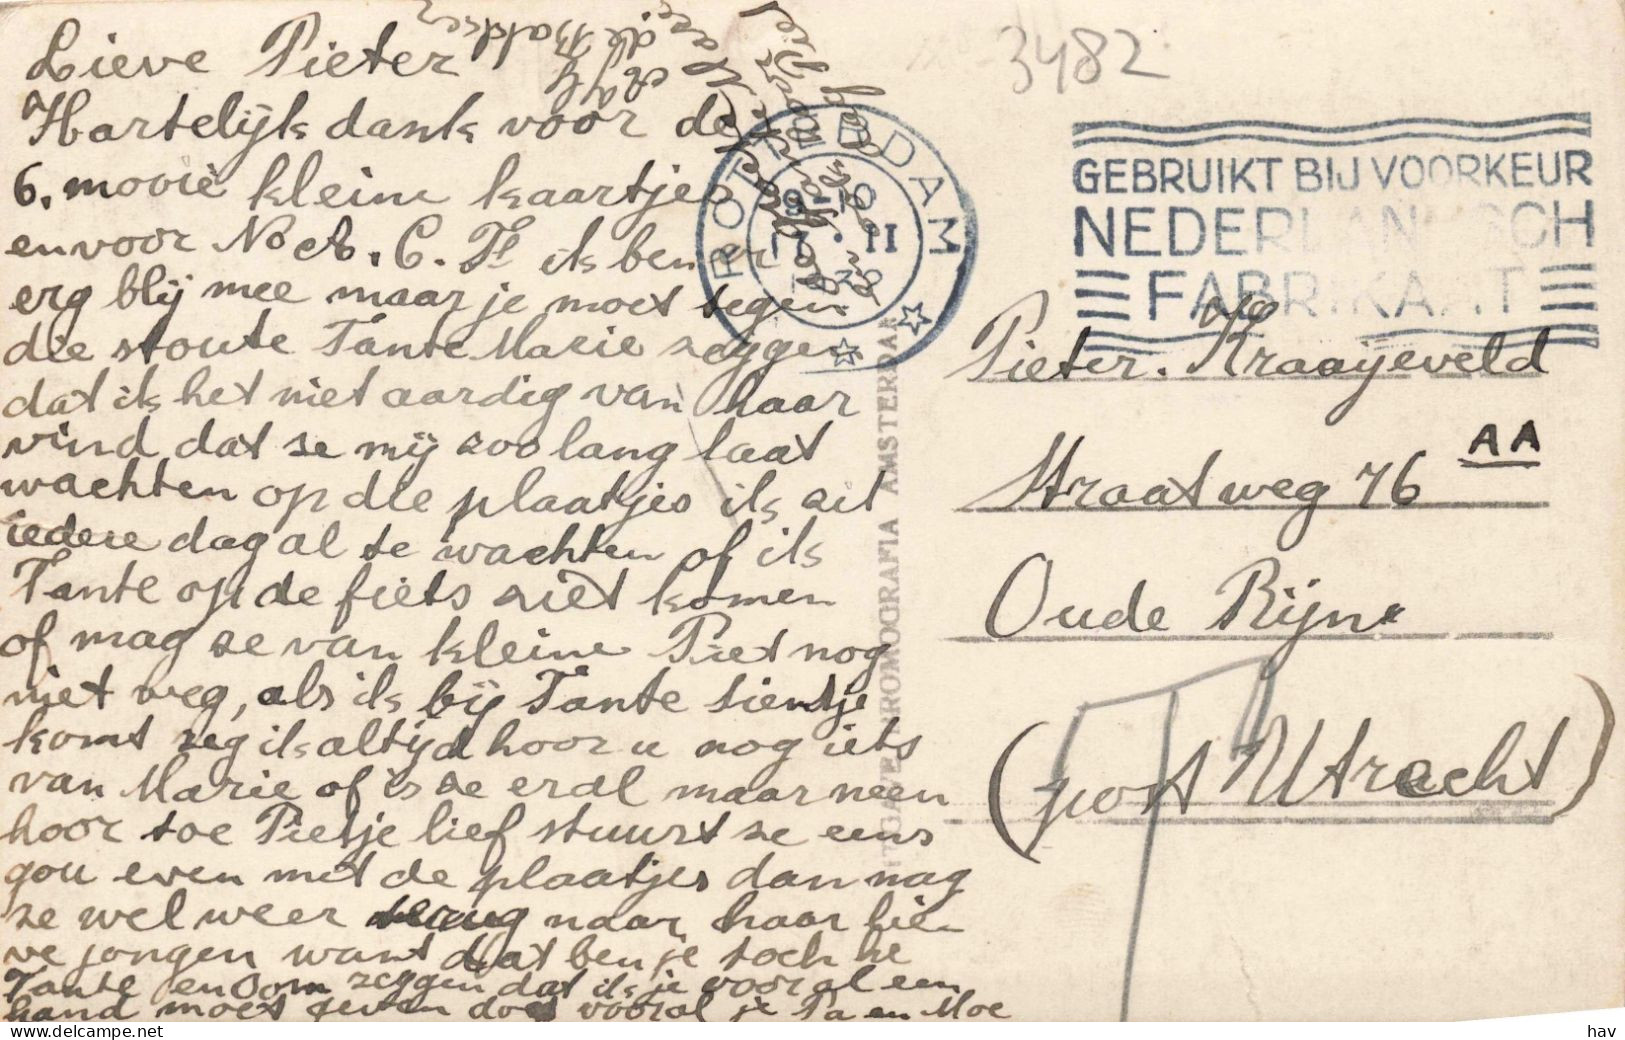 Lieve Pieter
Hartelijk dank voor de
6. mooie kleine kaartjes
en voor No A. C. F. ik ben er
erg blij mee maar je moet tegen
die stoute Tante Marie zeggen
dat ik het niet aardig van haar
vind dat se mij zoo lang laat
wachten op die plaatjes ik zit
iedere dag al te wachten of ik
Tante op de fiets ziet komen
of mag ze van kleine Piet nog
niet weg, als ik bij Tante Sientje
komt zeg ik altijd hoor u nog iets
van Marie of is ze er al maar neen
hoor toe Pietje lief stuurt ze eens
gou even met de plaatjes dan mag
ze wel weer terug naar haar lie-
ve jongen want dat ben je toch he
Tante en Oom zeggen dat ik je vooral een
hand moet geven doe vooral je Pa en Moe
3482
ROTTERDAM
9-10
II
GEBRUIKT BIJ VOORKEUR
NEDERLANDSCH
FABRIKAAT
Pieter. Kraayeveld
Straatweg 76 AA
Oude Rijn
(post Utrecht)
CHROMOGRAFIA AMSTERDAM
www.delcampe.net
hav